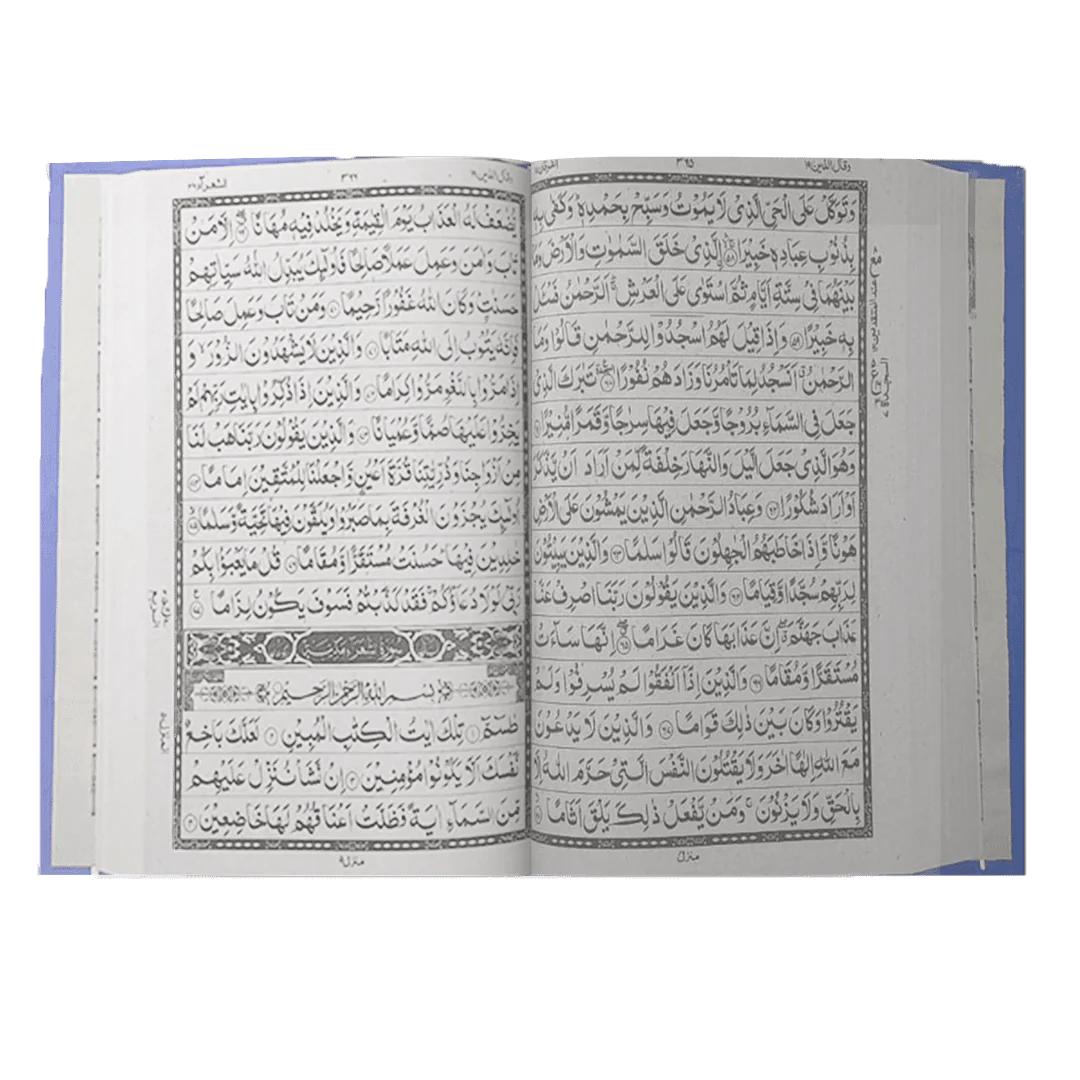 وقال الذين ١٩
٣٩٥
الفرقان ٢٥
وَتَوَكَّلْ عَلَى الْحَيِّ الَّذِىْ لَا يَمُوْتُ وَسَبِّحْ بِحَمْدِهٖ وَكَفٰى بِهٖ
بِذُنُوْبِ عِبَادِهٖ خَبِيْرَا ۵۸ الَّذِىْ خَلَقَ السَّمٰوٰتِ وَالْاَرْضَ وَمَا
بَيْنَهُمَا فِىْ سِتَّةِ اَيَّامٍ ثُمَّ اسْتَوٰى عَلَى الْعَرْشِ اَلرَّحْمٰنُ فَسْـَٔلْ
بِهٖ خَبِيْرًا ۵۹ وَاِذَا قِيْلَ لَهُمُ اسْجُدُوْا لِلرَّحْمٰنِ قَالُوْا وَمَا
الرَّحْمٰنُ اَنَسْجُدُ لِمَا تَاْمُرُنَا وَزَادَهُمْ نُفُوْرًا ۶۰ تَبٰرَكَ الَّذِىْ
جَعَلَ فِى السَّمَآءِ بُرُوْجًا وَّجَعَلَ فِيْهَا سِرٰجًا وَّقَمَرًا مُّنِيْرًا ۶۱
وَهُوَ الَّذِىْ جَعَلَ الَّيْلَ وَالنَّهَارَ خِلْفَةً لِّمَنْ اَرَادَ اَنْ يَّذَّكَّرَ
اَوْ اَرَادَ شُكُوْرًا ۶۲ وَعِبَادُ الرَّحْمٰنِ الَّذِيْنَ يَمْشُوْنَ عَلَى الْاَرْضِ
هَوْنًا وَّاِذَا خَاطَبَهُمُ الْجٰهِلُوْنَ قَالُوْا سَلٰمًا ۶۳ وَالَّذِيْنَ يَبِيْتُوْنَ
لِرَبِّهِمْ سُجَّدًا وَّقِيَامًا ۶۴ وَالَّذِيْنَ يَقُوْلُوْنَ رَبَّنَا اصْرِفْ عَنَّا
عَذَابَ جَهَنَّمَ اِنَّ عَذَابَهَا كَانَ غَرَامًا ۶۵ اِنَّهَا سَآءَتْ
مُسْتَقَرًّا وَّمُقَامًا ۶۶ وَالَّذِيْنَ اِذَا اَنْفَقُوْا لَمْ يُسْرِفُوْا وَلَمْ
يَقْتُرُوْا وَكَانَ بَيْنَ ذٰلِكَ قَوَامًا ۶۷ وَالَّذِيْنَ لَا يَدْعُوْنَ
مَعَ اللّٰهِ اِلٰهًا اٰخَرَ وَلَا يَقْتُلُوْنَ النَّفْسَ الَّتِىْ حَرَّمَ اللّٰهُ اِلَّا
بِالْحَقِّ وَلَا يَزْنُوْنَ وَمَنْ يَّفْعَلْ ذٰلِكَ يَلْقَ اَثَامًا ۶۸
منزل
وقال الذين ١٩
٣٦٦
الشعرآء ٢٦
يُّضٰعَفْ لَهُ الْعَذَابُ يَوْمَ الْقِيٰمَةِ وَيَخْلُدْ فِيْهٖ مُهَانًا ۶۹ اِلَّا مَنْ
تَابَ وَاٰمَنَ وَعَمِلَ عَمَلًا صَالِحًا فَاُولٰٓئِكَ يُبَدِّلُ اللّٰهُ سَيِّاٰتِهِمْ
حَسَنٰتٍ وَكَانَ اللّٰهُ غَفُوْرًا رَّحِيْمًا ۷۰ وَمَنْ تَابَ وَعَمِلَ صَالِحًا
فَاِنَّهٗ يَتُوْبُ اِلَى اللّٰهِ مَتَابًا ۷۱ وَالَّذِيْنَ لَا يَشْهَدُوْنَ الزُّوْرَ وَ
اِذَا مَرُّوْا بِاللَّغْوِ مَرُّوْا كِرَامًا ۷۲ وَالَّذِيْنَ اِذَا ذُكِّرُوْا بِاٰيٰتِ رَبِّهِمْ لَمْ
يَخِرُّوْا عَلَيْهَا صُمًّا وَّعُمْيَانًا ۷۳ وَالَّذِيْنَ يَقُوْلُوْنَ رَبَّنَا هَبْ لَنَا
مِنْ اَزْوَاجِنَا وَذُرِّيّٰتِنَا قُرَّةَ اَعْيُنٍ وَّاجْعَلْنَا لِلْمُتَّقِيْنَ اِمَامًا ۷۴
اُولٰٓئِكَ يُجْزَوْنَ الْغُرْفَةَ بِمَا صَبَرُوْا وَيُلَقَّوْنَ فِيْهَا تَحِيَّةً وَّسَلٰمًا ۷۵
خٰلِدِيْنَ فِيْهَا حَسُنَتْ مُسْتَقَرًّا وَّمُقَامًا ۷۶ قُلْ مَا يَعْبَؤُا بِكُمْ
رَبِّىْ لَوْلَا دُعَآؤُكُمْ فَقَدْ كَذَّبْتُمْ فَسَوْفَ يَكُوْنُ لِزَامًا ۷۷
بِسْمِ اللّٰهِ الرَّحْمٰنِ الرَّحِيْمِ
طٰسٓمّٓ ۱ تِلْكَ اٰيٰتُ الْكِتٰبِ الْمُبِيْنِ ۲ لَعَلَّكَ بَاخِعٌ
نَّفْسَكَ اَلَّا يَكُوْنُوْا مُؤْمِنِيْنَ ۳ اِنْ نَّشَاْ نُنَزِّلْ عَلَيْهِمْ
مِّنَ السَّمَآءِ اٰيَةً فَظَلَّتْ اَعْنَاقُهُمْ لَهَا خَاضِعِيْنَ ۴
منزل